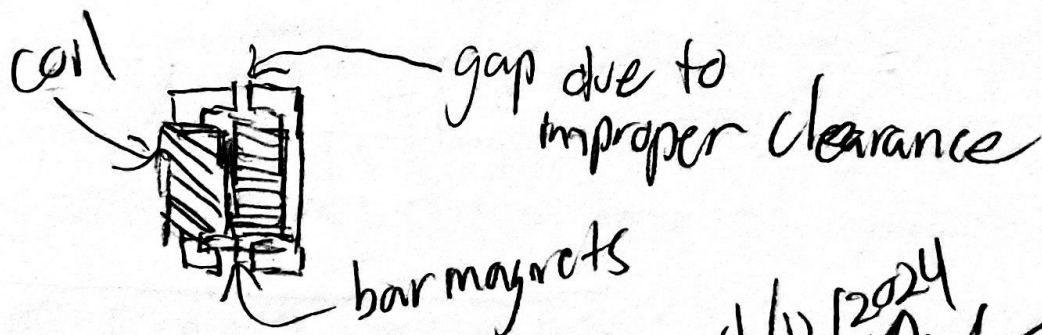 coil
gap due to
improper clearance
bar magnets
2024